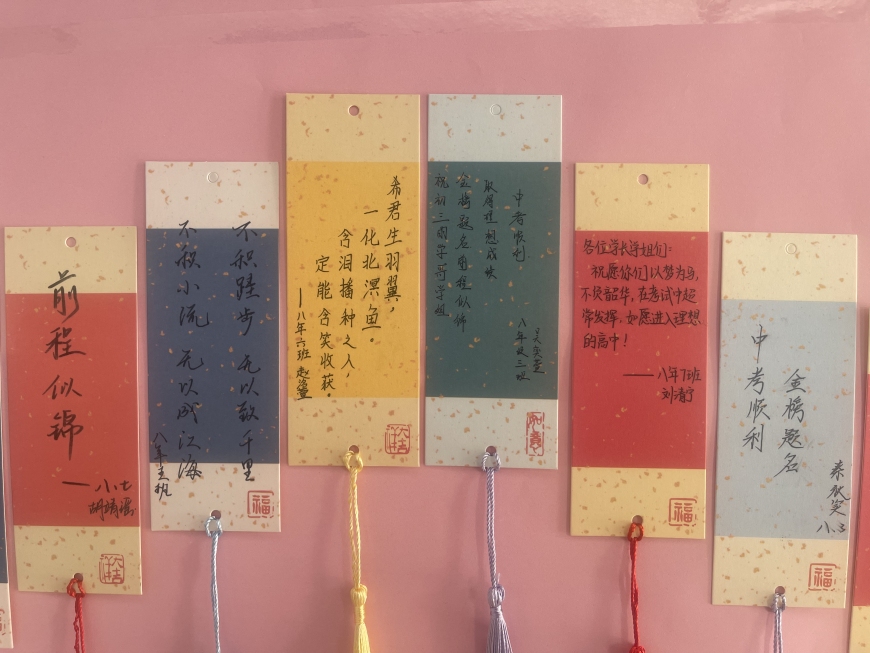 前程似锦
——八.七
胡靖瑶
不积跬步 无以致千里
不积小流 无以成江海
希君生羽翼，
一化北溟鱼.
含泪播种之人，
定能含笑收获.
——八年六班
祝初三的学哥学姐
金榜题名前程似锦
取得理想成绩
中考顺利
八年级三班
如意
各位学长学姐们：
祝愿你们以梦为马，
不负韶华，在考试中超
常发挥，如愿进入理想
的高中！
——八年7班
刘清宁
福
中考顺利
金榜题名
八.3
福
福